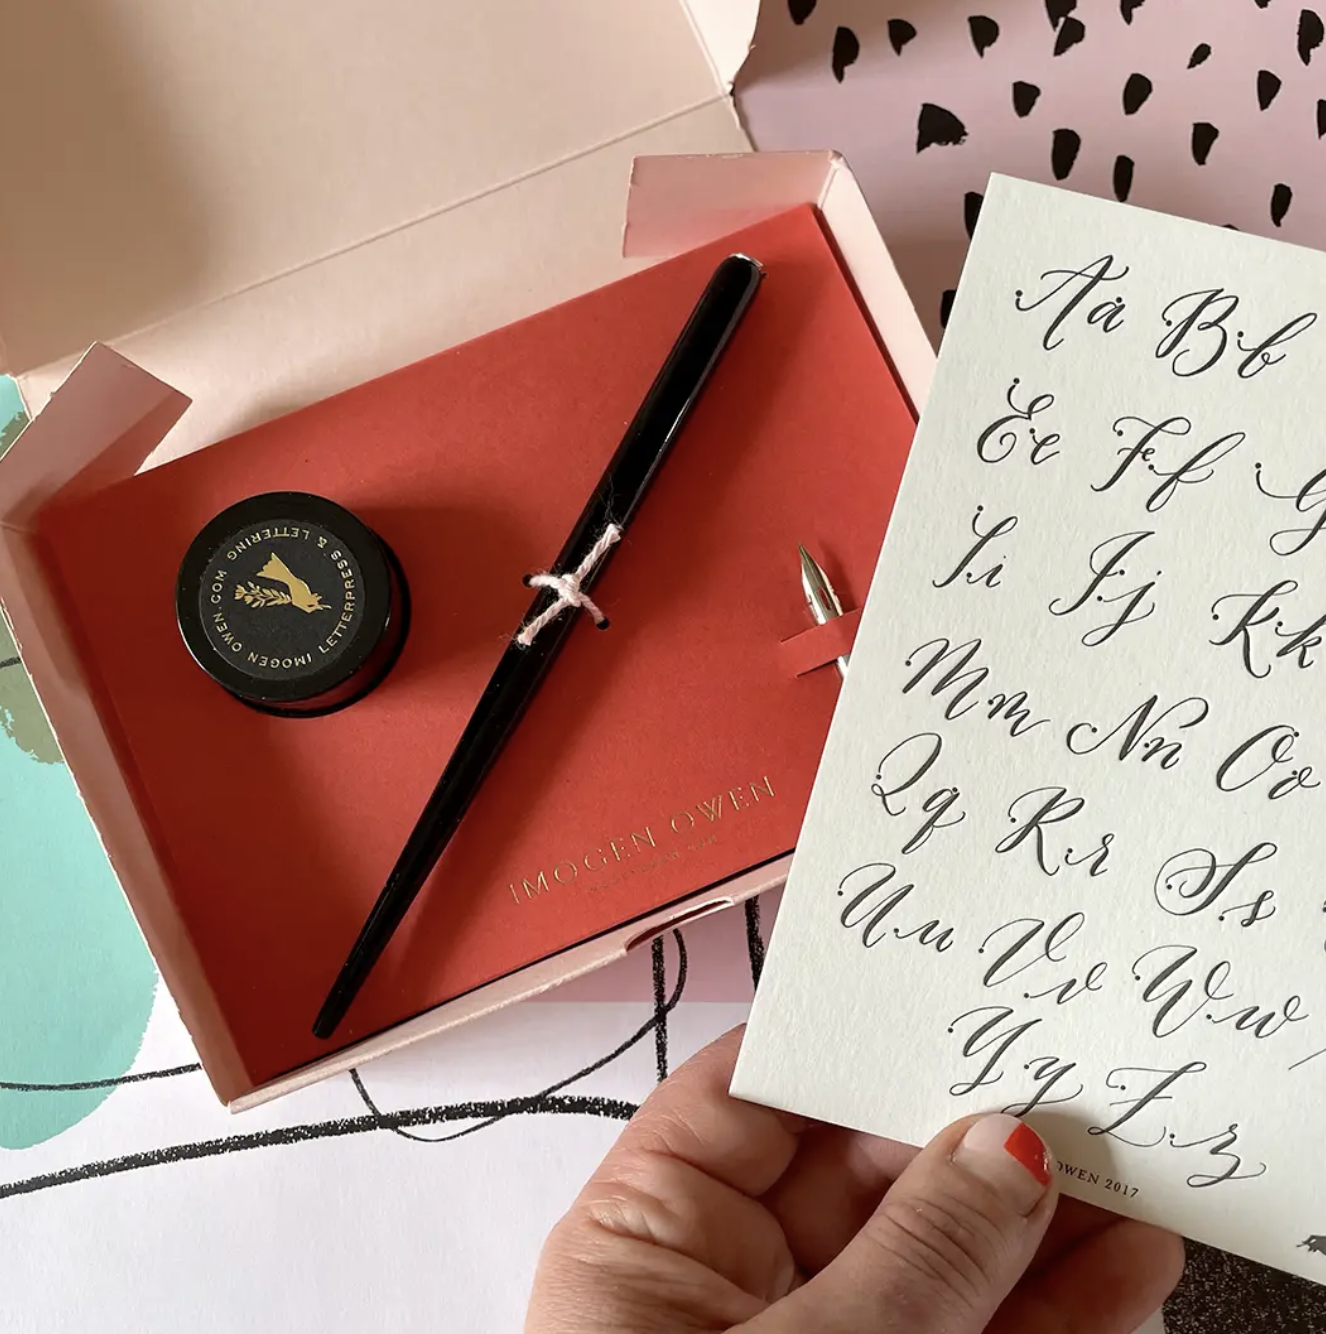 IMOGEN OWEN
IMOGEN OWEN.COM
LETTERPRESS & LETTERING
Aa Bb
Ee Ff G
Ii Jj Kk
Mm Nn Oo
Qq Rr Ss
Uu Vv Ww
Yy Zz
OWEN 2017